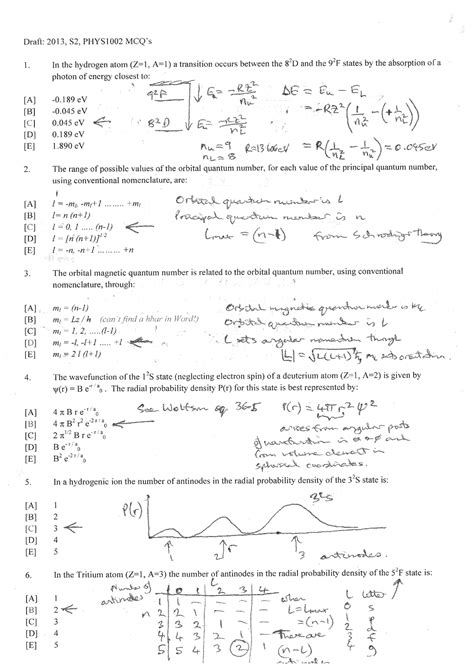 Draft: 2013, S2, PHYS1002 MCQ's
1. In the hydrogen atom (Z=1, A=1) a transition occurs between the 8²D and the 9²F states by the absorption of a
photon of energy closest to:
[A] -0.189 eV
[B] -0.045 eV
[C] 0.045 eV
[D] 0.189 eV
[E] 1.890 eV
9²F
8²D
ΔE = Eu - EL
nu = 9
nL = 8
R=13.606eV
= 0.045eV
2. The range of possible values of the orbital quantum number, for each value of the principal quantum number,
using conventional nomenclature, are:
[A] l = -ml, -ml+1 ........ +ml
[B] l= n (n+1)
[C] l = 0, 1 ..... (n-1)
[D] l = [n (n+1)]^1/2
[E] l = -n, -n+1 ......... +n
Orbital quantum number is L
Principal quantum number is n
Lmax = (n-1) from Schrodinger Theory
3. The orbital magnetic quantum number is related to the orbital quantum number, using conventional
nomenclature, through:
[A] ml = (n-1)
[B] ml = Lz / h (can't find a hbar in Word!)
[C] ml = 1, 2, .....(l-1)
[D] ml = -l, -l+1 ..... +l
[E] ml = 2 l (l+1)
Orbital magnetic quantum number is mL
Orbital quantum number is L
L sets angular momentum though
|L| = √L(L+1) ħ, mL sets orientation.
4. The wavefunction of the 1²S state (neglecting electron spin) of a deuterium atom (Z=1, A=2) is given by
ψ(r) = B e^-r/a0. The radial probability density P(r) for this state is best represented by:
[A] 4 π B r e^-r/a0
[B] 4 π B² r² e^-2r/a0
[C] 2 π^1/2 B r e^-r/a0
[D] B e^-r/a0
[E] B² e^-2r/a0
See Wolfson eq. 36-5
P(r) = 4πr²ψ²
arises from angular parts
of wavefunction in θ + φ and
from volume element in
spherical coordinates.
5. In a hydrogenic ion the number of antinodes in the radial probability density of the 3²S state is:
[A] 1
[B] 2
[C] 3
[D] 4
[E] 5
P(r)
3²S
r
1 2 3 antinodes.
6. In the Tritium atom (Z=1, A=3) the number of antinodes in the radial probability density of the 5²F state is:
[A] 1
[B] 2
[C] 3
[D] 4
[E] 5
Number of
antinodes
L
0 1 2 3 4
n
1 1 - - - -
2 2 1 - - -
3 3 2 1 - -
4 4 3 2 1 -
5 5 4 3 2 1
when
L = Lmax
= (n-1)
There are
(n-L)
L letter
0 s
1 p
2 d
3 f
4 g